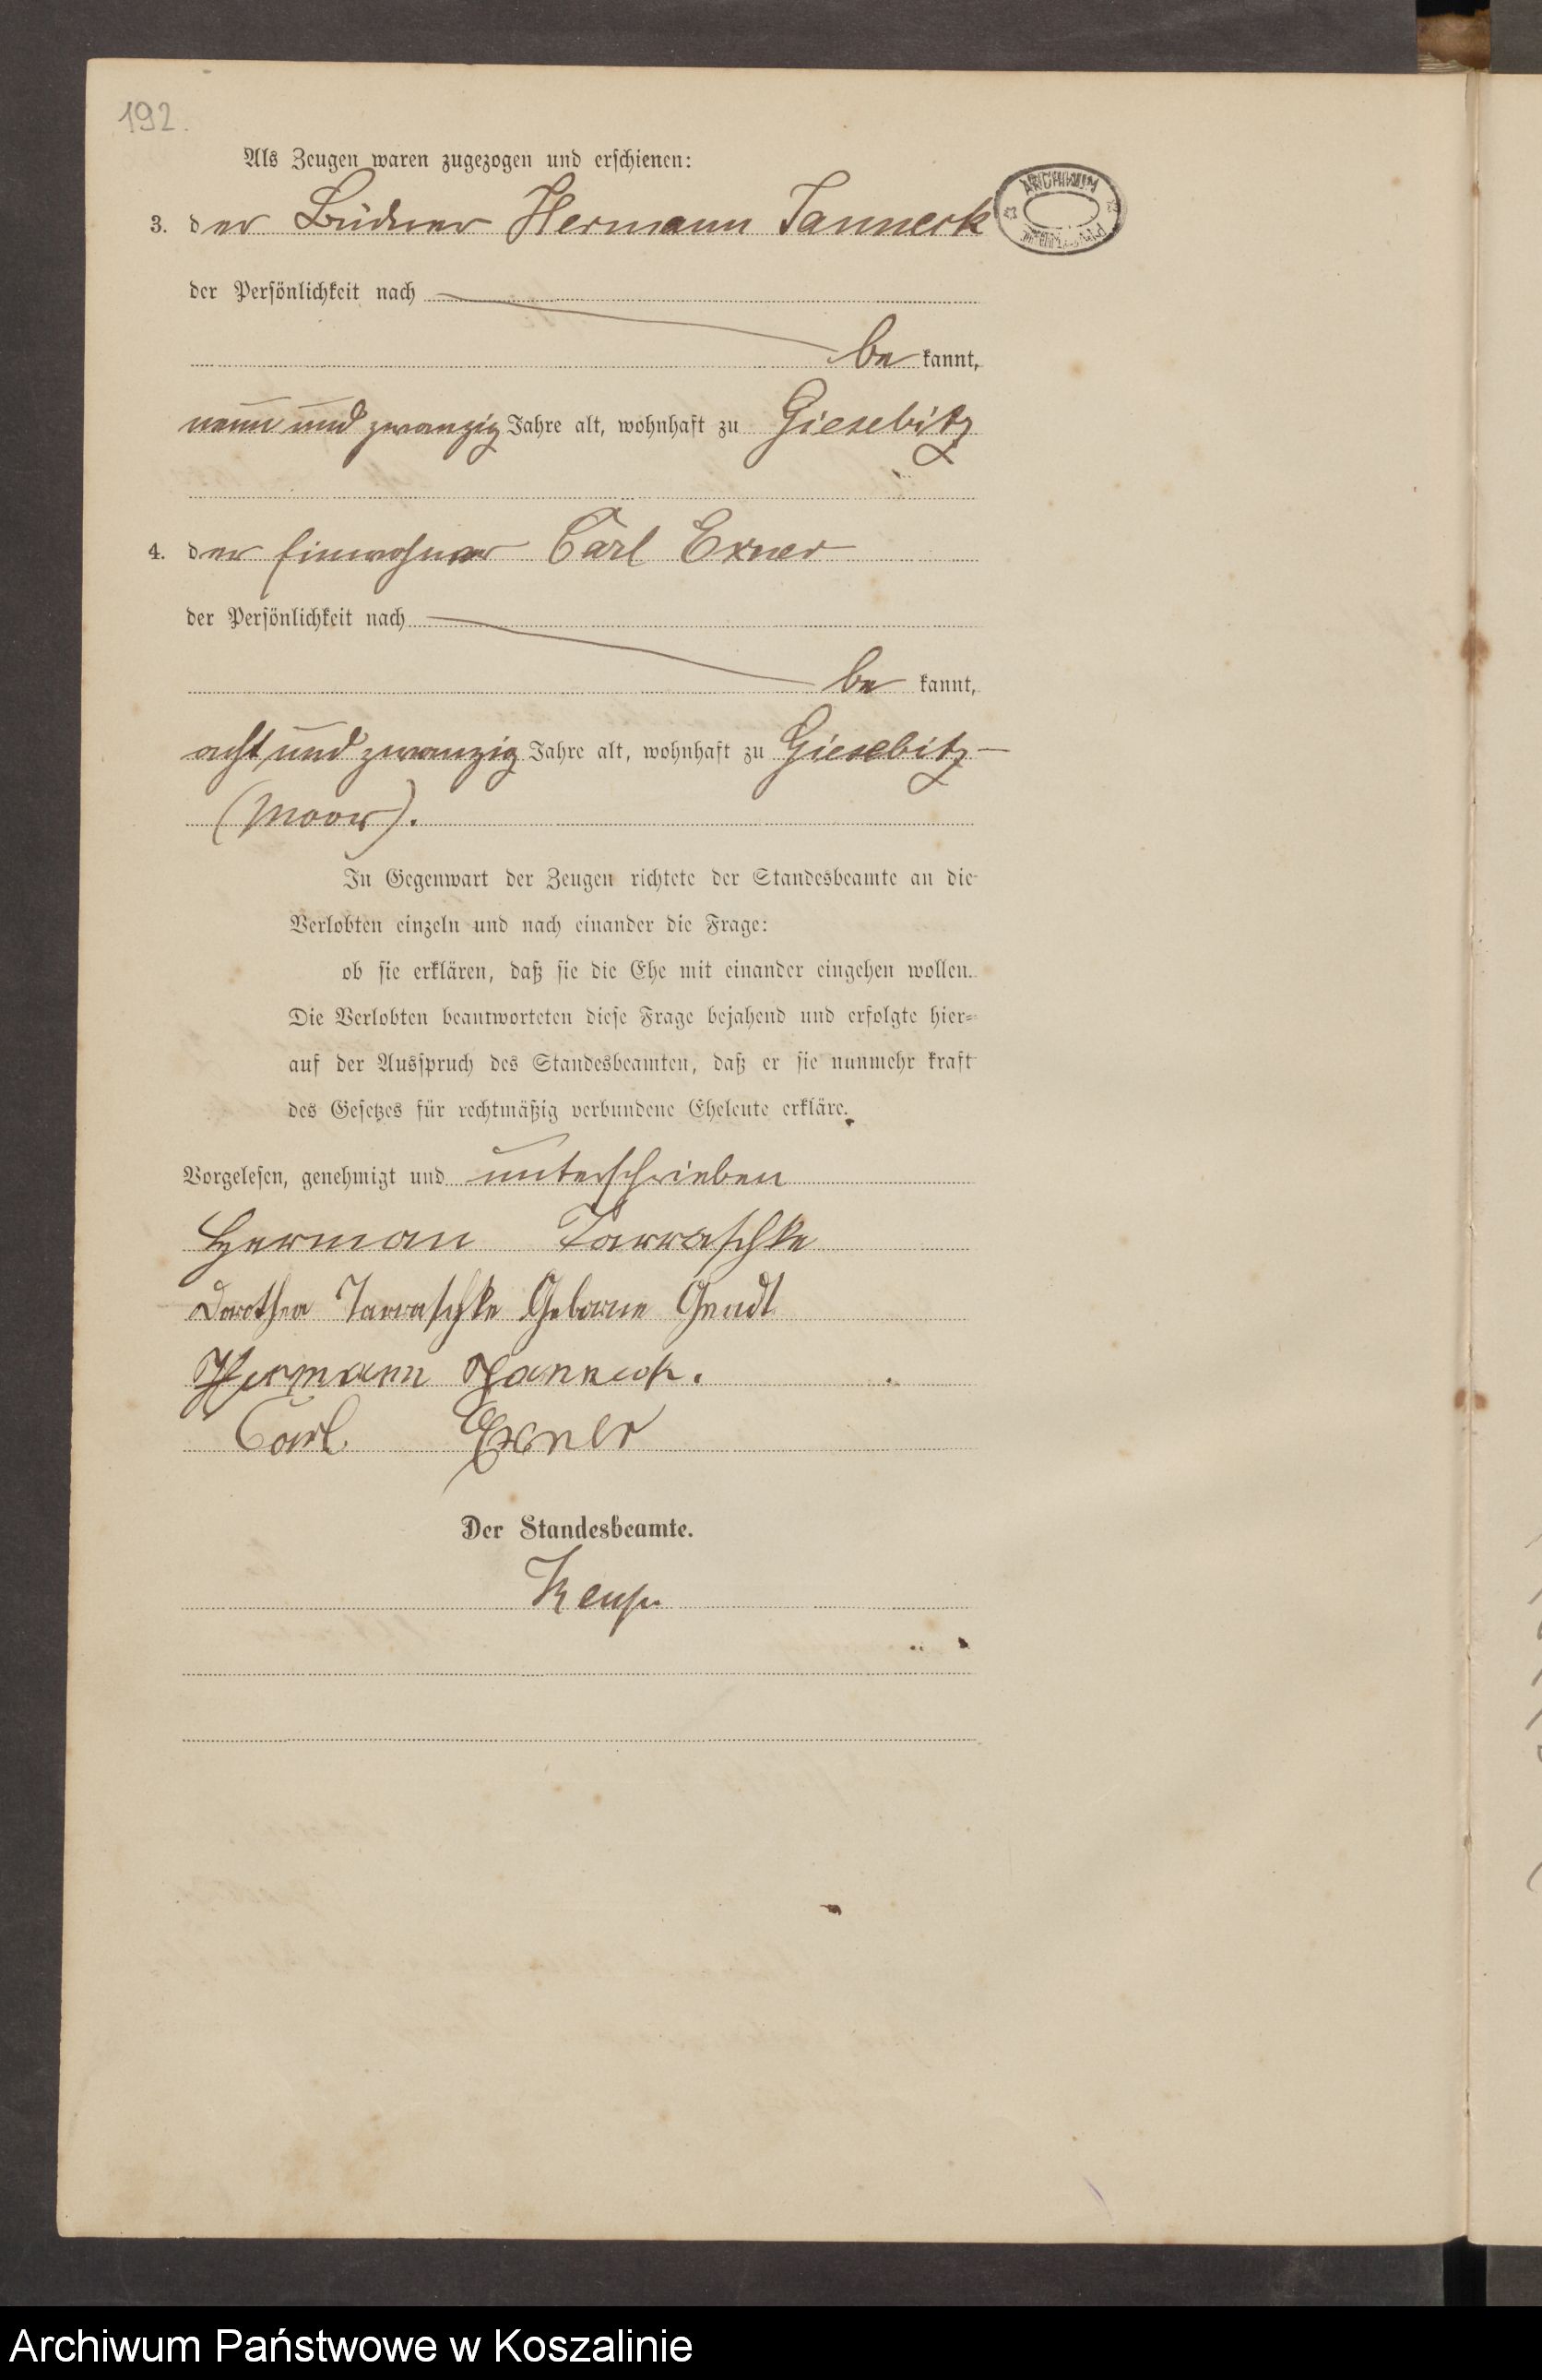 192.
Als Zeugen waren zugezogen und erschienen:
3. der Büdner Hermann Janneck
der Persönlichkeit nach
be kannt,
neun und zwanzig Jahre alt, wohnhaft zu Giesebitz
4. der Einwohner Carl Exner
der Persönlichkeit nach
be kannt,
acht und zwanzig Jahre alt, wohnhaft zu Giesebitz-
(Moor).
In Gegenwart der Zeugen richtete der Standesbeamte an die
Verlobten einzeln und nach einander die Frage:
ob sie erklären, daß sie die Ehe mit einander eingehen wollen.
Die Verlobten beantworteten diese Frage bejahend und erfolgte hier=
auf der Ausspruch des Standesbeamten, daß er sie nunmehr kraft
des Gesetzes für rechtmäßig verbundene Eheleute erkläre.
Vorgelesen, genehmigt und unterschrieben
Herman Tarraschke
Dorothea Tarraschke Geborne Gendt
Hermann Janneck.
Carl Exner
Der Standesbeamte.
ARCHIWUM
Archiwum Państwowe w Koszalinie